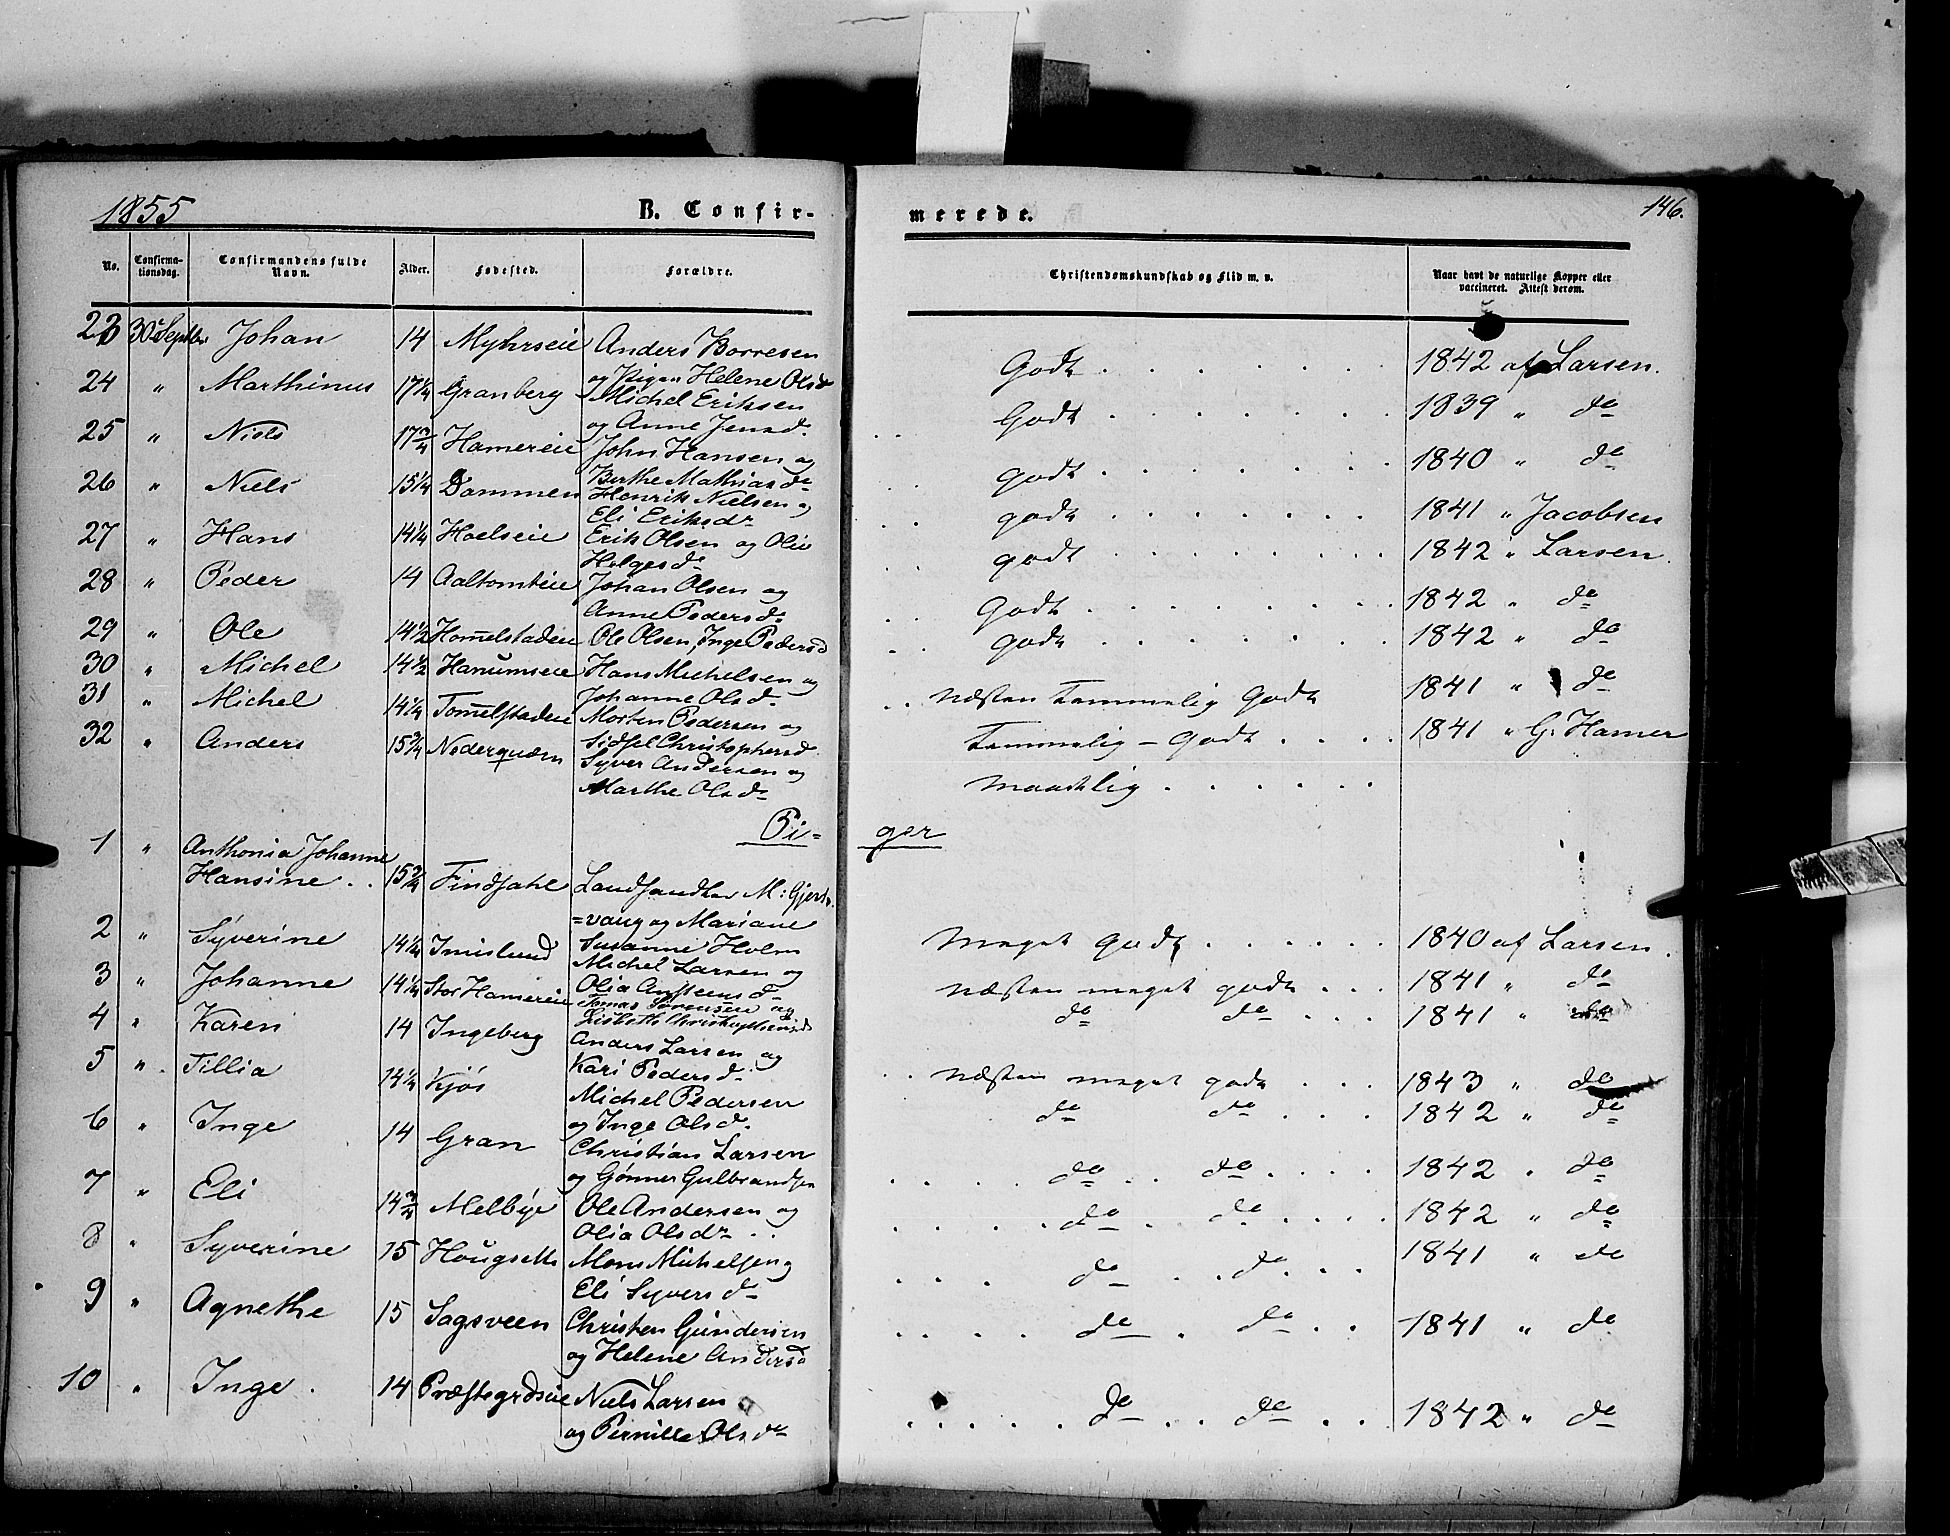 1855 B. Confir- merede. 146.
No. Confirmationsdag. Confirmandens fulde Navn. Alder. Fødested. Forældre. Christendomskundskab og Flid m. v. Naar havt de naturlige Kopper eller vaccineret. Attest derom.
23 30 Septbr Johan 14 Myhrseie Anders Borresen og Pigen Helene Olsd Godt 1842 af Larsen.
24 " Marthinus 17 1/4 Granberg Michel Eriksen og Anne Jensd. Godt 1839 " do
25 " Niels 17 3/4 Hamereie John Hansen og Berthe Mathiasdr godt 1840 " do
26 " Niels 15 1/4 Dammen Henrik Nielsen og Eli Eriksdr godt 1841 " Jacobsen
27 " Hans 14 1/4 Hoelseie Erik Olsen og Olia Helgesdr godt 1842 " Larsen.
28 " Peder 14 Aaltomteie Johan Olsen og Anne Pedersdr Godt 1842 " do
29 " Ole 14 1/2 Hommelstadeie Ole Olsen, Inge Pedersd godt 1842 " do
30 " Michel 14 1/2 Hanumseie Hans Michelsen og Johanne Olsd. næsten temmelig Godt 1841 " do
31 " Michel 14 1/4 Tommelstadeie Morten Pedersen og Sidsel Christophersd. temmelig - Godt 1841 " G. Hamer
32 " Anders 15 3/4 Nederquærn Syver Andersen og Marthe Olsdr maadelig
Pi= ger
1 " Anthonia Johanne Hansine 15 3/4 Findsahl Landhandler M: Gjert= =vang og Mariane Susanne Holm Meget Godt 1840 af Larsen.
2 " Syverine 14 1/4 Imislund Michel Larsen og Olia Anstensdr næsten meget godt 1841 " do
3 " Johanne 14 1/4 Stor Hamereie Tomas Sørensen og Lisbeth Christophersd do do 1841 " do
4 " Karen 14 Ingeberg Anders Larsen og Kari Pedersd. næsten meget godt 1843 " do
5 " Tillia 14 1/4 Kjøs Michel Pedersen og Inge Olsd. do do 1842 " do
6 " Inge 14 Gran Christian Larsen og Gønner Gulbrandsen do do 1842 " do
7 " Eli 14 3/4 Melbye Ole Andersen og Olia Olsdr do do 1842 " do
8 " Syverine 15 Hougseth Mons Michelsen og Eli Syversdr do do 1841 " do
9 " Agnethe 15 Sagsveen Christen Gundersen og Helene Andersd do do 1841 " do
10 " Inge 14 Præstegrdseie Niels Larsen og Pernille Olsdr do do 1842 " do